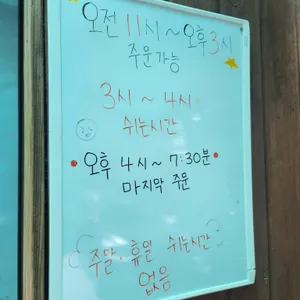 오전 11시~오후 3시
주문가능
3시 ~ 4시
쉬는시간
오후 4시~ 7:30분
마지막 주문
주말, 휴일 쉬는시간
없음